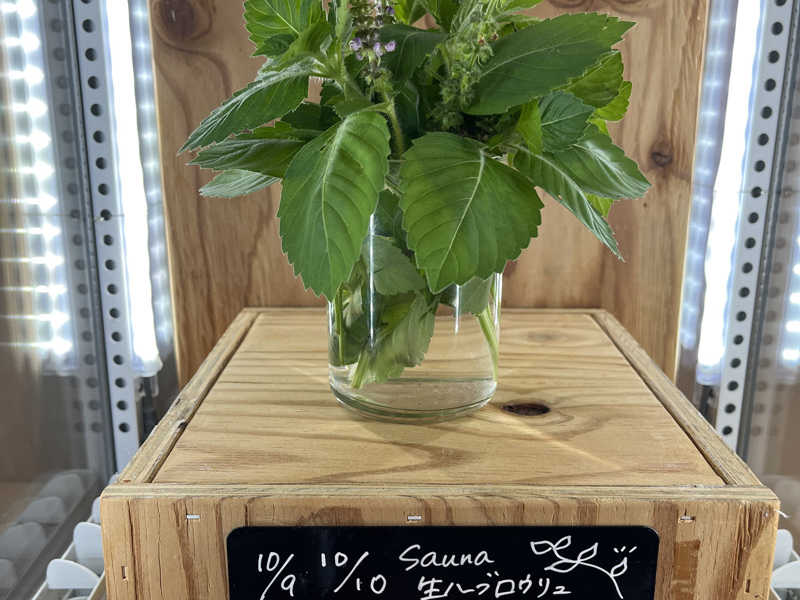 10/9 10/10 Sauna
生ハーブロウリュ